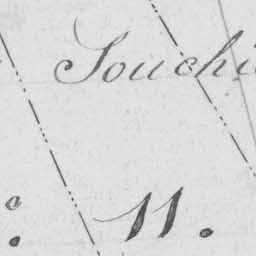 Souchi
11.